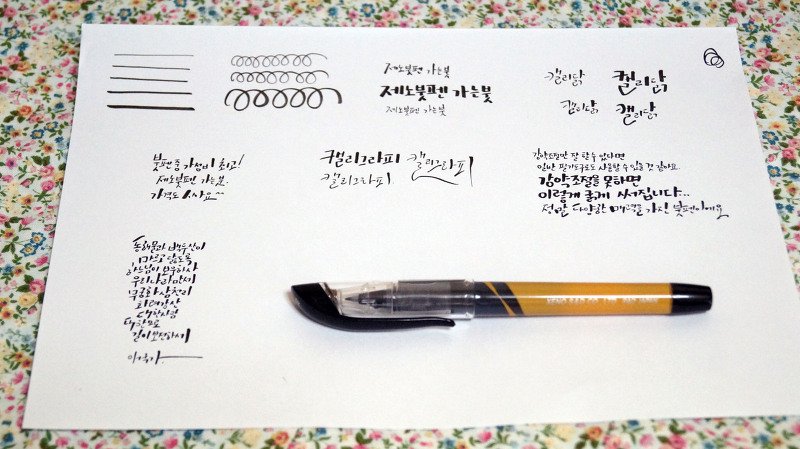 제노붓펜 가는붓
제노붓펜 가는붓
제노붓펜 가는붓
캘리닭 캘리닭
캘리닭 캘리닭
붓펜 중 가성비 최고!
제노붓펜 가는붓.
가격도 싸요~^
캘리그라피 캘리그라피
캘리그라피
강약조절만 잘 할 수 있다면
일반 필기도구로도 사용할 수 있을 것 같아요.
강약조절을 못하면
이렇게 굵게 써집니다...
정말 다양한 매력을 가진 붓펜이에요
동해물과 백두산이
마르고 닳도록
하느님이 보우하사
우리나라만세
무궁화 삼천리
화려강산
대한사람
대한으로
길이 보전하세
애국가